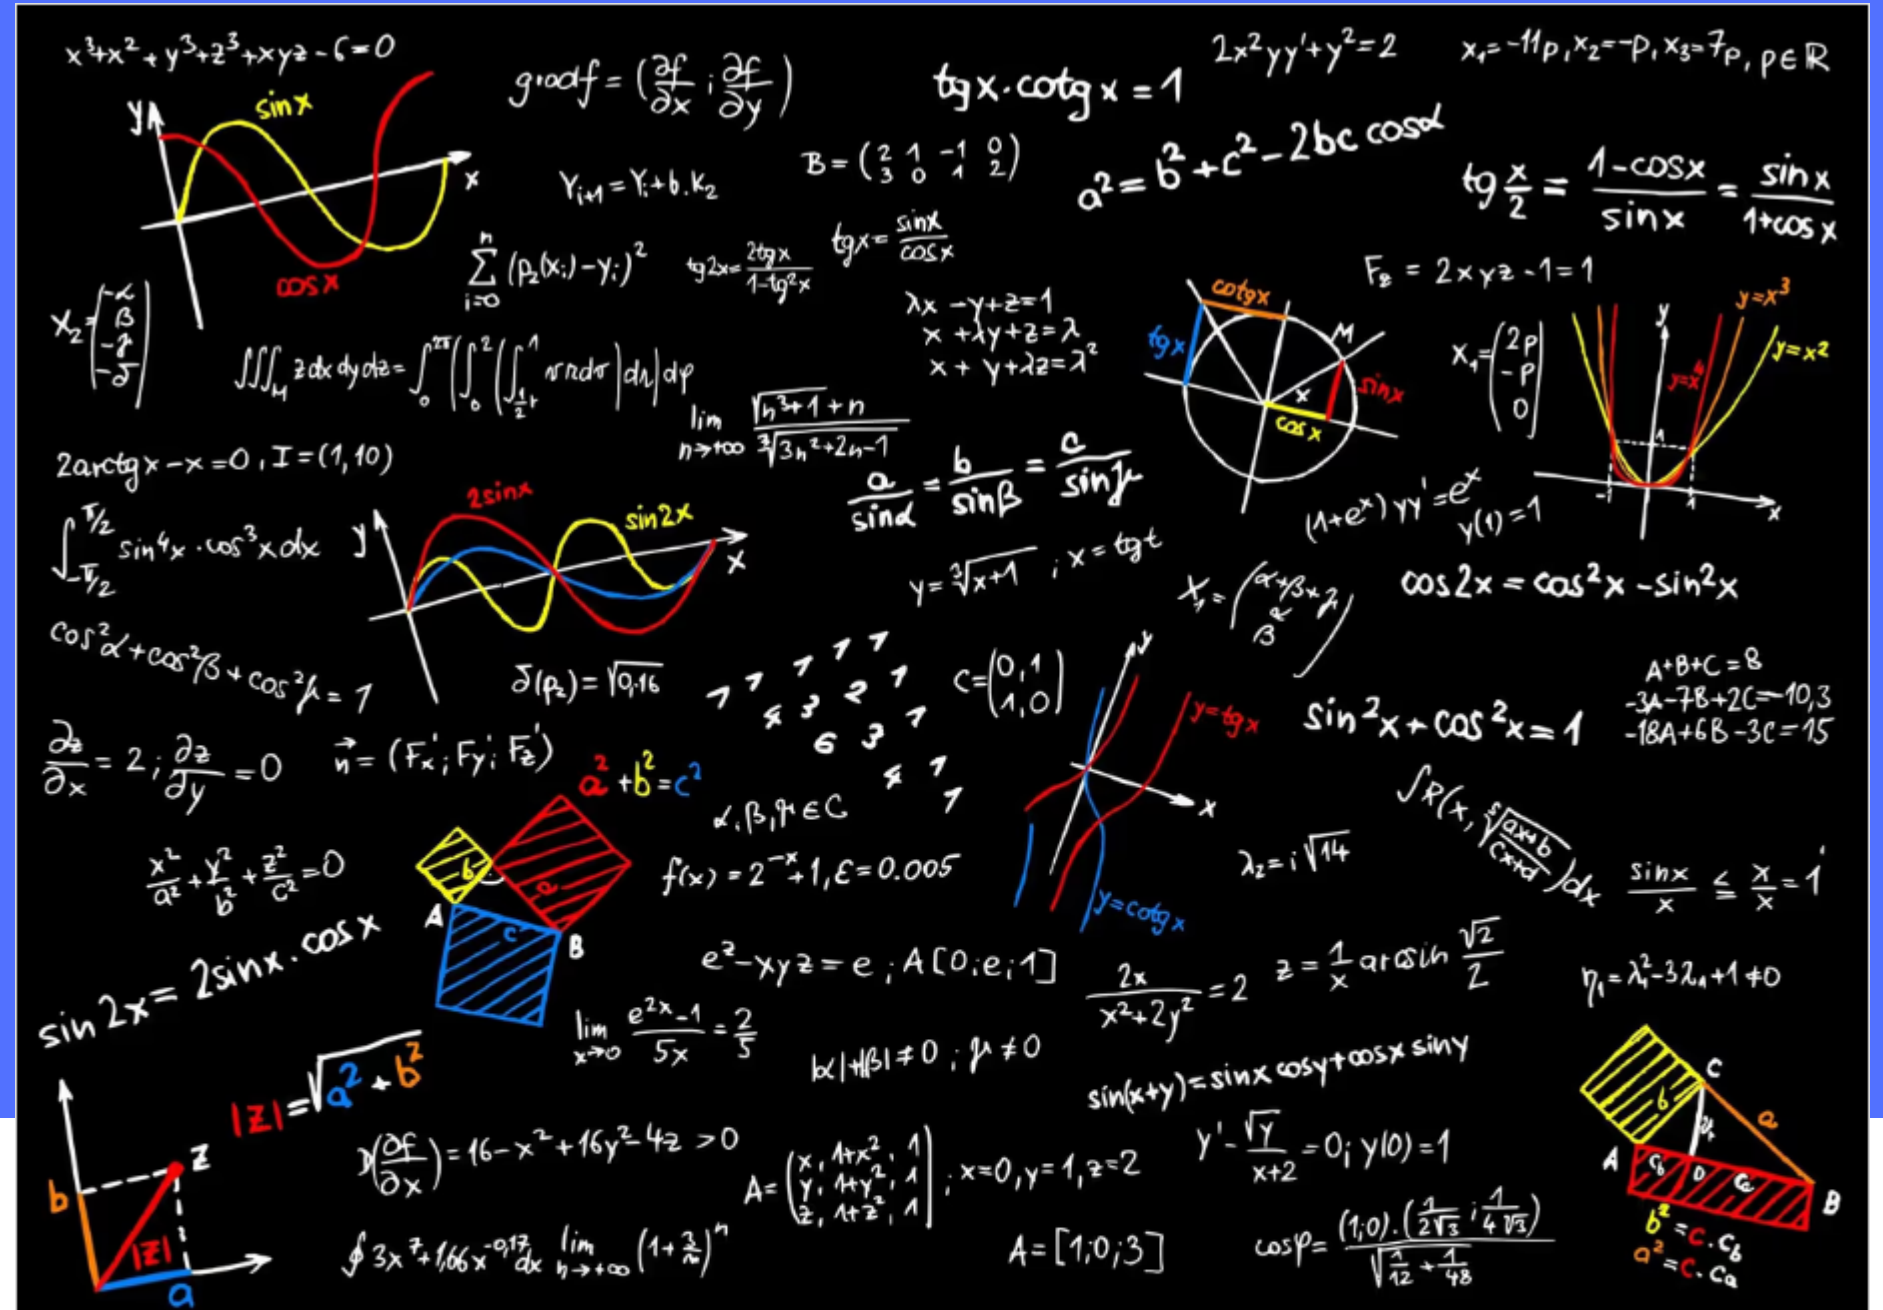 x³+x²+y³+z³+xyz-6=0
y
sinx
x
cosx
gradf=(∂f/∂x;∂f/∂y)
tgx.cotgx=1
2x²yy'+y²=2
x₁=-11p,x₂=-p,x₃=7p,p∈ℝ
B=(2 1 -1 0
3 0 1 2)
a²=b²+c²-2bc cosα
tg x/2 = 1-cosx/sinx = sinx/1+cosx
Yᵢ₊₁=Yᵢ+b.K₂
n
∑ (p₂(xᵢ)-yᵢ)²
i=0
tg2x=2tgx/1-tg²x
tgx=sinx/cosx
F₂ = 2xyz-1=1
X₂=(-α
β
-γ
-δ)
λx-y+z=1
x+λy+z=λ
x+y+λz=λ²
cotgx
tgx
M
sinx
x
cosx
X₁=(2p
-p
0)
y
y=x³
y=x²
y=x⁴
1
-1
1
x
∭M zdxdydz=
lim n→+∞ √n³+1+n/∛3n²+2n-1
2arctgx-x=0,I=(1,10)
a/sinα=b/sinβ=c/sinγ
(1+eˣ)yy'=eˣ
y(1)=1
∫-π/2 π/2 sin⁴x.cos³xdx
y
2sinx
sin2x
x
y=∛x+1 ; x=tgt
X₁=(α+β+γ
α
β)
cos2x=cos²x-sin²x
cos²α+cos²β+cos²γ=1
δ(p₂)=√0,16
1 1 1 1 1
4 3 2 1
6 3 1
4 1
1
C=(0,1
1,0)
y
y=tgx
x
y=cotgx
sin²x+cos²x=1
A+B+C=8
-3A-7B+2C=-10,3
-18A+6B-3C=15
∂z/∂x=2;∂z/∂y=0
n⃗=(Fx';Fy';Fz')
a²+b²=c²
b
a
A
c
B
α,β,γ∈C
∫R(x,⁵√ax+b/cx+d)dx
x²/a²+y²/b²+z²/c²=0
f(x)=2⁻ˣ+1,ε=0.005
λ₂=i√14
sinx/x ≤ x/x=1
sin2x=2sinx.cosx
e^z-xyz=e;A[0;e;1]
2x/x²+2y²=2
z=1/x arcsin √2/2
η₁=λ₁²-3λ₁+1≠0
lim x→0 e²ˣ-1/5x=2/5
|α|+|β|≠0;γ≠0
sin(x+y)=sinxcosy+cosxsiny
|z|=√a²+b²
b
z
|z|
a
(∂f/∂x)=16-x²+16y²-4z>0
A=(x,1+x²,1
y,1+y²,1
z,1+z²,1);x=0,y=1,z=2
y'-√y/x+2=0;y(0)=1
∮3x⁷+1,66x⁻⁰'¹⁷dx
lim n→+∞
A=[1;0;3]
cosφ=(1;0).(1/2√3;1/4√3)/√1/12+1/48
C
b
a
A
cb
D
ca
B
b²=c.cb
a²=c.ca